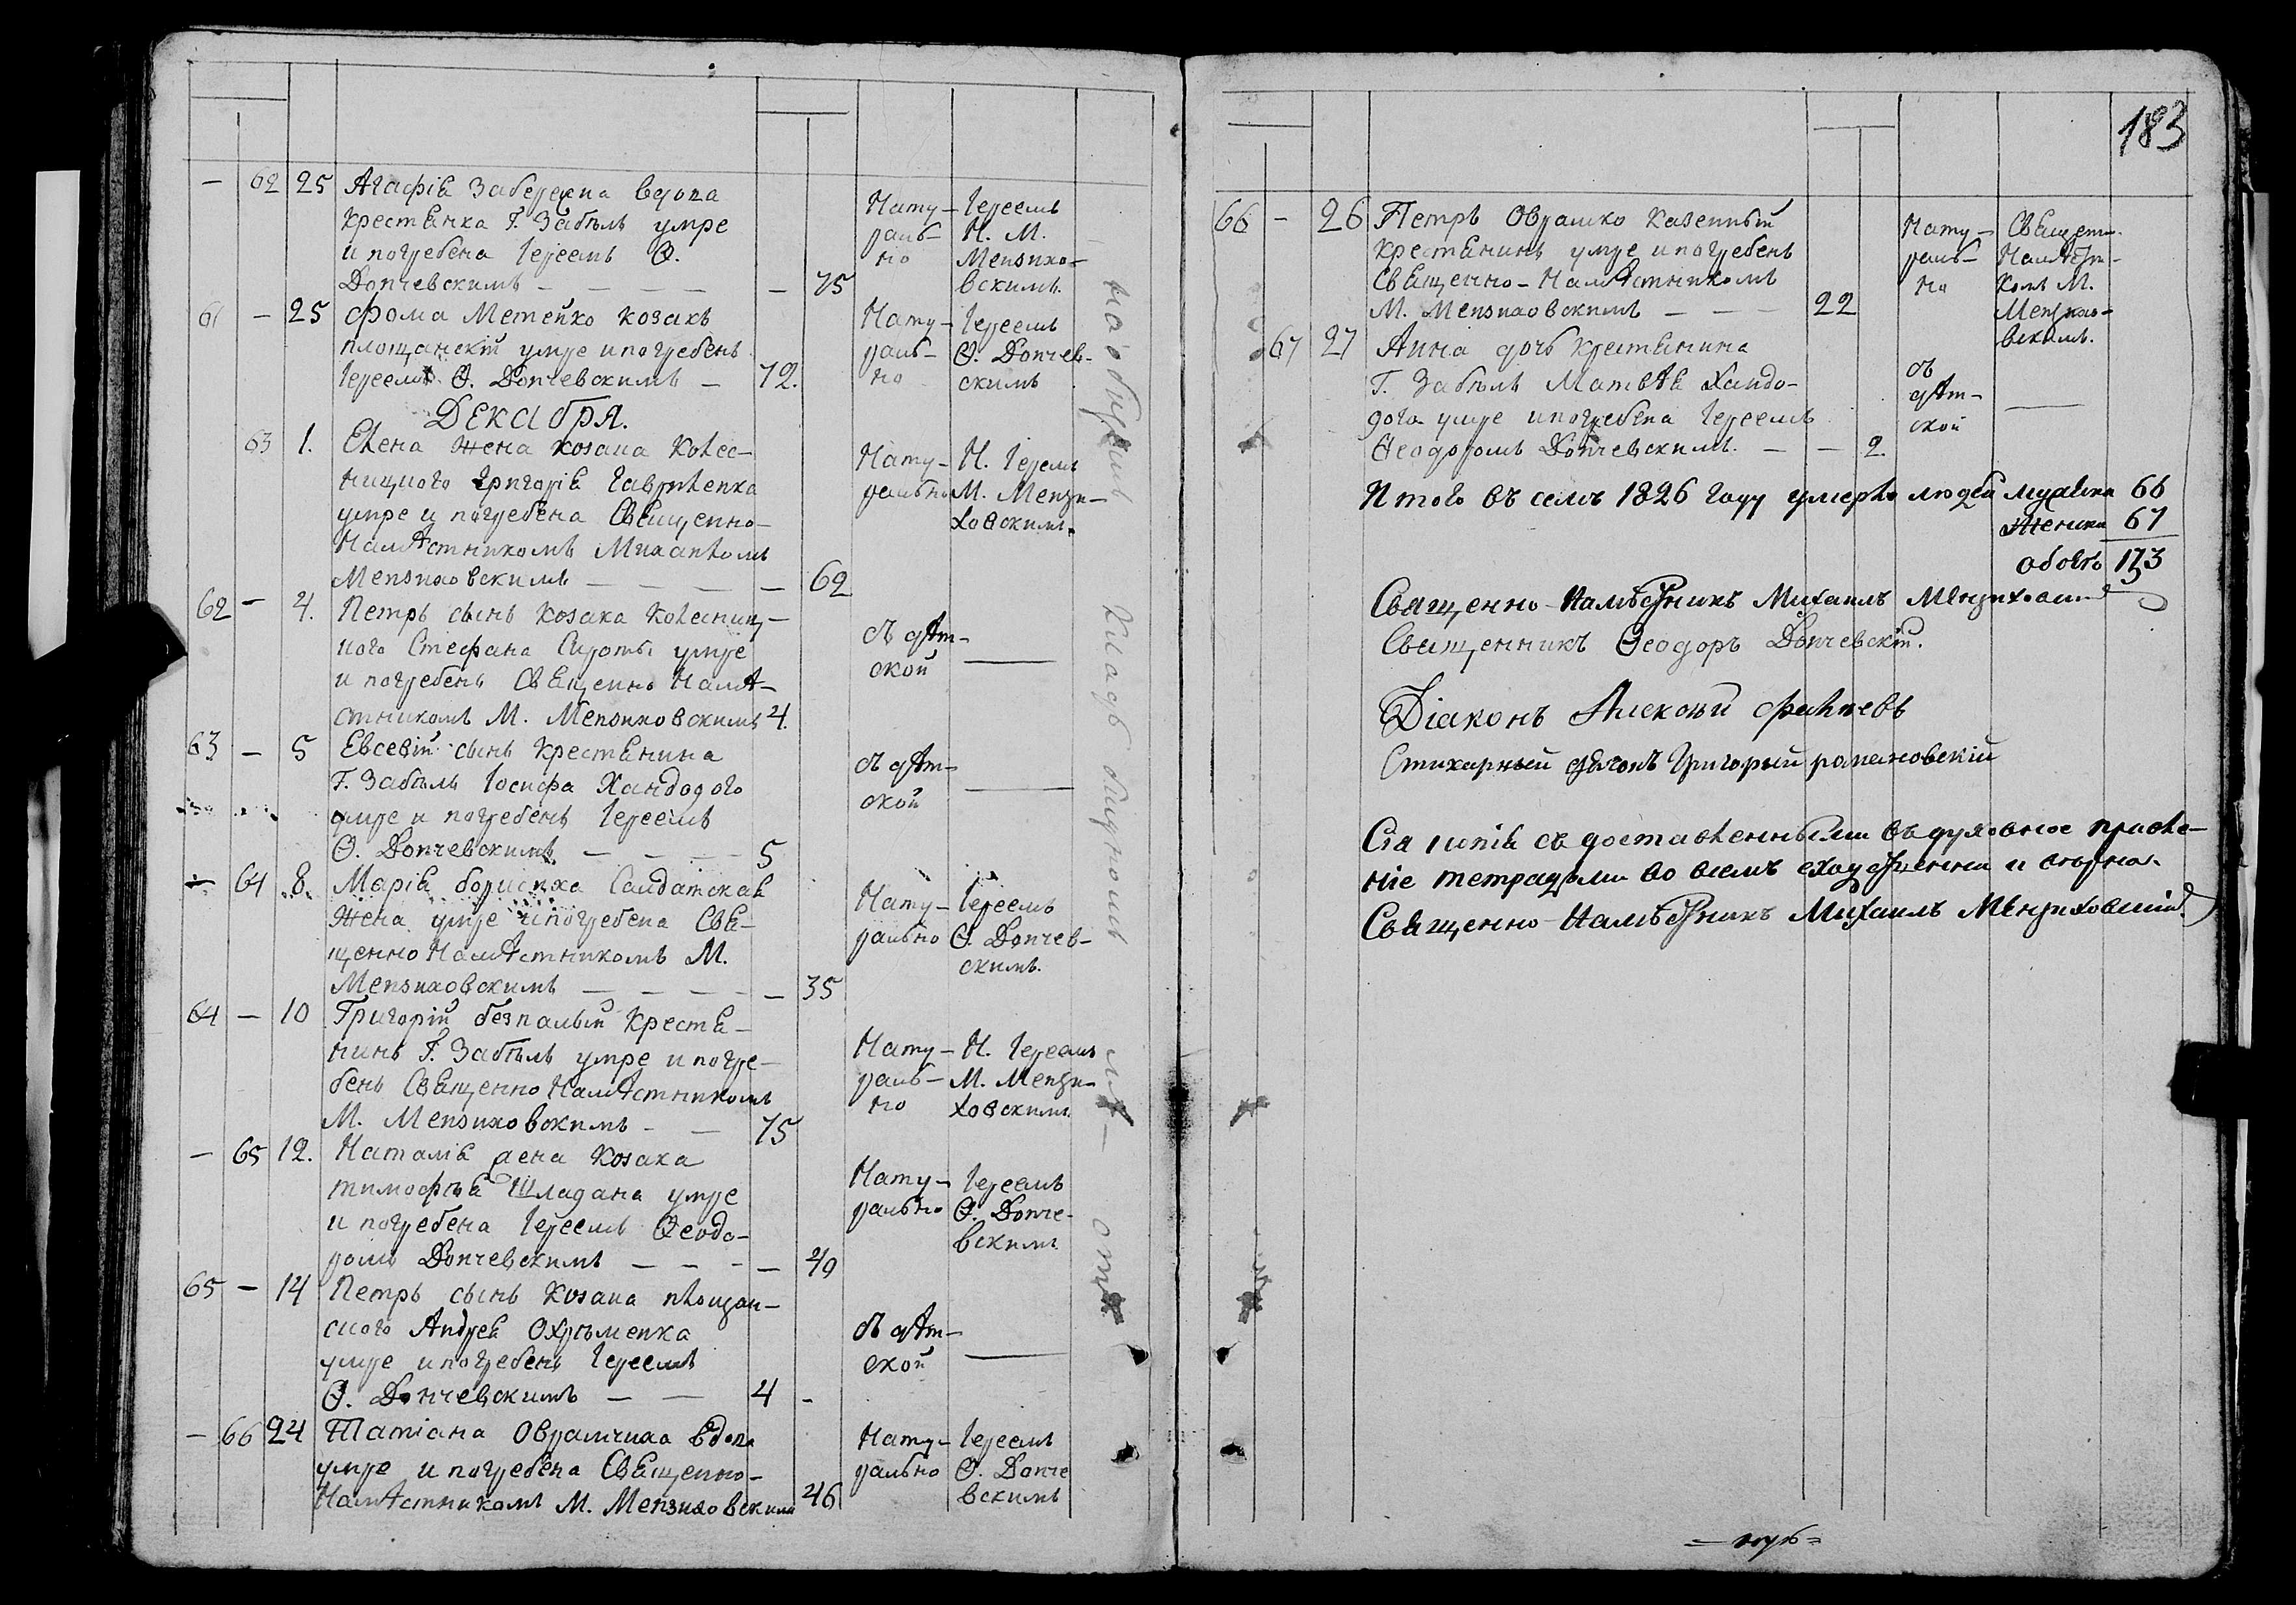 — 62 25 Агафіа Забережна вдова
Крестьянка Г. Забѣлы умре
и погребена Іереемъ Ѳ.
Дончевскимъ — — — — — 75
Нату-
раль-
но
Іереемъ
Н. М.
Мензихо-
вскимъ.
61 — 25 Фома Метейко козакъ
площанскій умре и погребенъ
Іереемъ Ѳ. Дончевскимъ — 72.
Нату-
раль-
но
Іереемъ
Ѳ. Дончев-
скимъ
Декабря.
63 1. Елена Жена козака Колес-
ницкого Григоріа Гавриленка
умре и погребена Священно-
Намѣстникомъ Михаиломъ
Мензиховскимъ — — — — 62
Нату-
рально
Н. Іереемъ
М. Мензи-
ховскимъ.
62 — 4. Петръ сынъ козака Колесниц-
кого Стефана Сироты умре
и погребенъ Священно Намѣ-
стникомъ М. Мензиховскимъ 4.
Съ дѣт-
ской —
63 — 5 Евсевій сынъ Крестьянина
Г. Забѣлы Іосифа Хандодого
умре и погребенъ Іереемъ
Ѳ. Дончевскимъ — — — — 5
Съ дѣт-
ской —
— 64 8. Маріа Борисиха Салдатская
Жена умре и погребена Свя-
щенно Намѣстникомъ М.
Мензиховскимъ — — — — — 35
Нату-
рально
Іереемъ
Ѳ. Дончев-
скимъ.
64 — 10 Григорій безпалый Крестья-
нинъ Г. Забѣлы умре и погре-
бенъ Священно Намѣстникомъ
М. Мензиховскимъ — — 75
Нату-
раль-
но
Н. Іереемъ
М. Мензи-
ховскимъ
— 65 12. Наталіа жена Козака
тимофѣя Шладана умре
и погребена Іереемъ Ѳеодо-
ромъ Дончевскимъ — — — — 40
Нату-
рально
Іереемъ
Ѳ. Донче-
вскимъ
65 — 14 Петръ сынъ Козака площан-
ского Андрея Охрѣменка
умре и погребенъ Іереемъ
Ѳ. Дончевскимъ — — 4 -
Съ дѣт-
ской —
— 66 24 Татіана Оврамчиха вдова
умре и погребена Священно-
Намѣстникомъ М. Мензиховскимъ 46
Нату-
рально
Іереемъ
Ѳ. Донче
вскимъ
183
66 — 26 Петръ Оврашко казенный
Крестьянинъ умре и погребенъ
Священно-Намѣстникомъ
М. Мензиховскимъ — — — 22
Нату-
раль-
но
Священ-
Намѣстн-
комъ М.
Мензихо-
вскимъ.
67 27 Анна дочь Крестьянина
Г. Забѣлы Матвѣя Хандо-
дого умре и погребена Іереемъ
Ѳеодоромъ Дончевскимъ. — — 2.
Съ
дѣт-
ской —
Итого въ семъ 1826 году умерло людей мужеска 66
Женска 67
обоего 173
Священно-Намѣстникъ Михаилъ Мензиховскій
Священникъ Ѳеодоръ Дончевскій.
Діаконъ Алексѣй
Стихарный дьячокъ Григорый
Сіа копіа съ доставленными въ духовное правле-
ніе тетрадьми во всемъ сходственна и вѣрна.
Священно-Намѣстникъ Михаилъ Мензиховскій